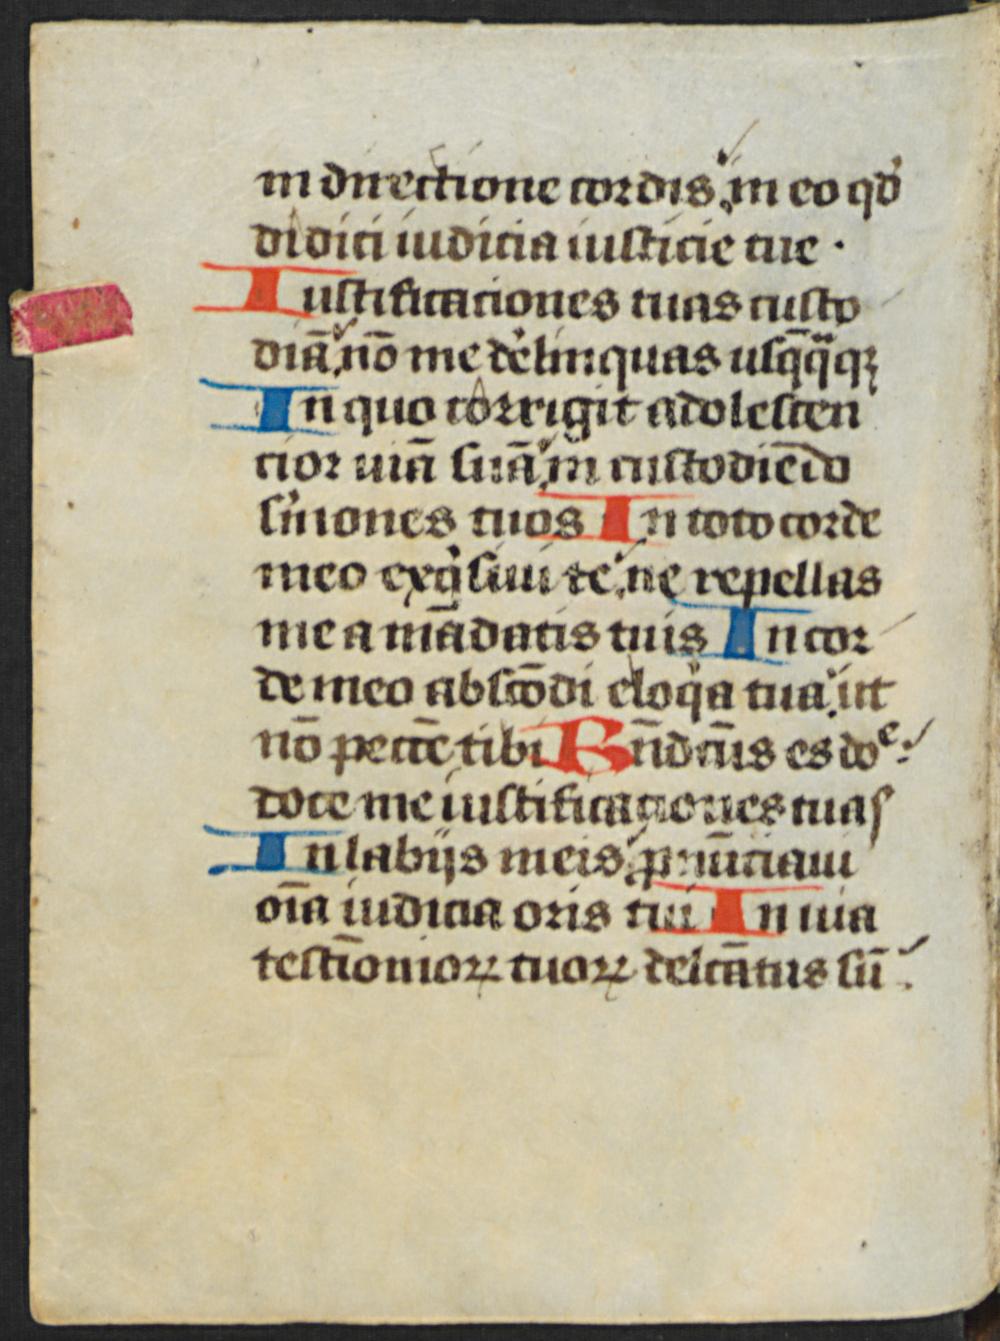 in directione cordis, in eo qď
didici iudicia iusticie tue ·
Iustificaciones tuas custo
diā, nō me dělinquas usq̄q̄qꝫ
In quo corrigit adolescen
cior uiā suā, in custodiēdo
s̓mones tuos In toto corde
meo exq̇siui te, ne repellas
me a mādatis tuis In cor
de meo abscōdi eloq̇a tua, ut
nō peccē tibi Bn̄dcūs es doᵉ:
doce me iustificaciones tuas
In labijs meis, ꝓnūciaui
oīa iudicia oris tui In uia
testīonioꝝ tuoꝝ delcātus sū :